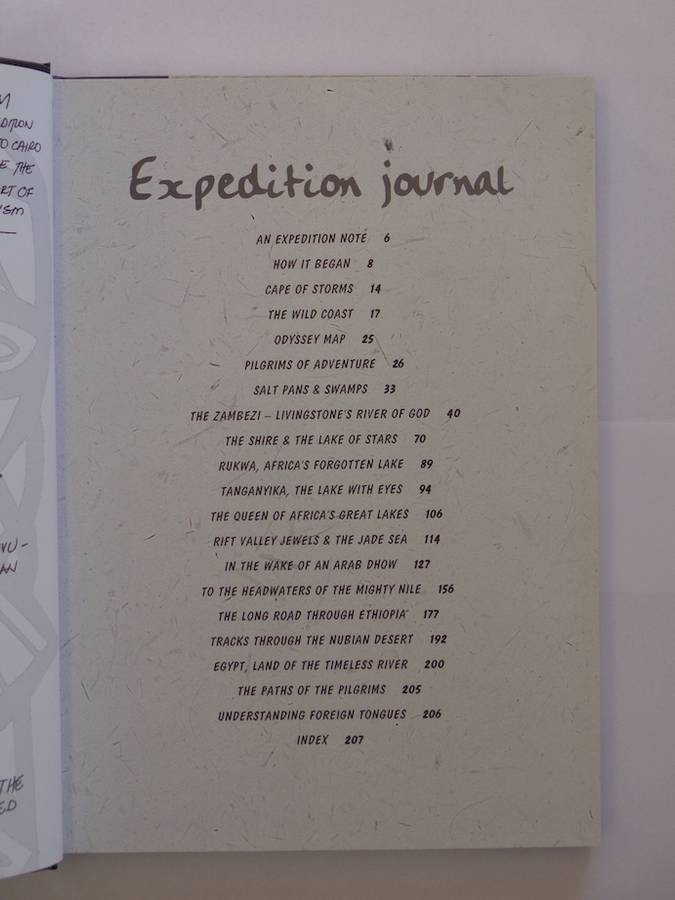 EDITION
TO CAIRO
THE
ART OF
Expedition journal
AN EXPEDITION NOTE 6
HOW IT BEGAN 8
CAPE OF STORMS 14
THE WILD COAST 17
ODYSSEY MAP 25
PILGRIMS OF ADVENTURE 26
SALT PANS & SWAMPS 33
THE ZAMBEZI – LIVINGSTONE'S RIVER OF GOD 40
THE SHIRE & THE LAKE OF STARS 70
RUKWA, AFRICA'S FORGOTTEN LAKE 89
TANGANYIKA, THE LAKE WITH EYES 94
THE QUEEN OF AFRICA'S GREAT LAKES 106
RIFT VALLEY JEWELS & THE JADE SEA 114
IN THE WAKE OF AN ARAB DHOW 127
TO THE HEADWATERS OF THE MIGHTY NILE 156
THE LONG ROAD THROUGH ETHIOPIA 177
TRACKS THROUGH THE NUBIAN DESERT 192
EGYPT, LAND OF THE TIMELESS RIVER 200
THE PATHS OF THE PILGRIMS 205
UNDERSTANDING FOREIGN TONGUES 206
INDEX 207
THE